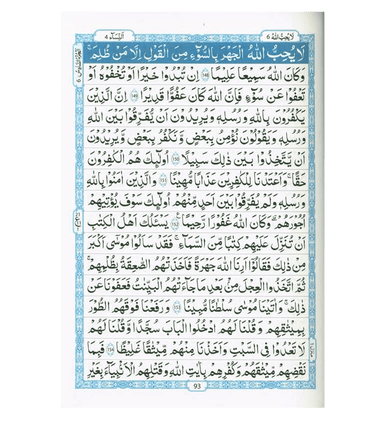 لَا يُحِبُّ اللّٰهُ ٦
اَلنِّسَآء ٤
لَا يُحِبُّ اللّٰهُ الْجَهْرَ بِالسُّوْٓءِ مِنَ الْقَوْلِ اِلَّا مَنْ ظُلِمَ ؕ
وَكَانَ اللّٰهُ سَمِيْعًا عَلِيْمًا ﴿۱۴۸﴾ اِنْ تُبْدُوْا خَيْرًا اَوْ تُخْفُوْهُ اَوْ
تَعْفُوْا عَنْ سُوْٓءٍ فَاِنَّ اللّٰهَ كَانَ عَفُوًّا قَدِيْرًا ﴿۱۴۹﴾ اِنَّ الَّذِيْنَ
يَكْفُرُوْنَ بِاللّٰهِ وَرُسُلِهٖ وَيُرِيْدُوْنَ اَنْ يُّفَرِّقُوْا بَيْنَ اللّٰهِ
وَرُسُلِهٖ وَيَقُوْلُوْنَ نُؤْمِنُ بِبَعْضٍ وَّنَكْفُرُ بِبَعْضٍ ۙ وَّيُرِيْدُوْنَ
اَنْ يَّتَّخِذُوْا بَيْنَ ذٰلِكَ سَبِيْلًا ﴿۱۵۰﴾ اُولٰٓئِكَ هُمُ الْكٰفِرُوْنَ
حَقًّا ۚ وَاَعْتَدْنَا لِلْكٰفِرِيْنَ عَذَابًا مُّهِيْنًا ﴿۱۵۱﴾ وَالَّذِيْنَ اٰمَنُوْا بِاللّٰهِ
وَرُسُلِهٖ وَلَمْ يُفَرِّقُوْا بَيْنَ اَحَدٍ مِّنْهُمْ اُولٰٓئِكَ سَوْفَ يُؤْتِيْهِمْ
اُجُوْرَهُمْ ؕ وَكَانَ اللّٰهُ غَفُوْرًا رَّحِيْمًا ﴿۱۵۲﴾ يَسْـَٔلُكَ اَهْلُ الْكِتٰبِ
اَنْ تُنَزِّلَ عَلَيْهِمْ كِتٰبًا مِّنَ السَّمَآءِ فَقَدْ سَاَلُوْا مُوْسٰٓى اَكْبَرَ
مِنْ ذٰلِكَ فَقَالُوْٓا اَرِنَا اللّٰهَ جَهْرَةً فَاَخَذَتْهُمُ الصّٰعِقَةُ بِظُلْمِهِمْ ۚ
ثُمَّ اتَّخَذُوا الْعِجْلَ مِنْۢ بَعْدِ مَا جَآءَتْهُمُ الْبَيِّنٰتُ فَعَفَوْنَا عَنْ
ذٰلِكَ ۚ وَاٰتَيْنَا مُوْسٰى سُلْطٰنًا مُّبِيْنًا ﴿۱۵۳﴾ وَرَفَعْنَا فَوْقَهُمُ الطُّوْرَ
بِمِيْثَاقِهِمْ وَقُلْنَا لَهُمُ ادْخُلُوا الْبَابَ سُجَّدًا وَّقُلْنَا لَهُمْ
لَا تَعْدُوْا فِى السَّبْتِ وَاَخَذْنَا مِنْهُمْ مِّيْثَاقًا غَلِيْظًا ﴿۱۵۴﴾ فَبِمَا
نَقْضِهِمْ مِّيْثَاقَهُمْ وَكُفْرِهِمْ بِاٰيٰتِ اللّٰهِ وَقَتْلِهِمُ الْاَنْۢبِيَآءَ بِغَيْرِ
93